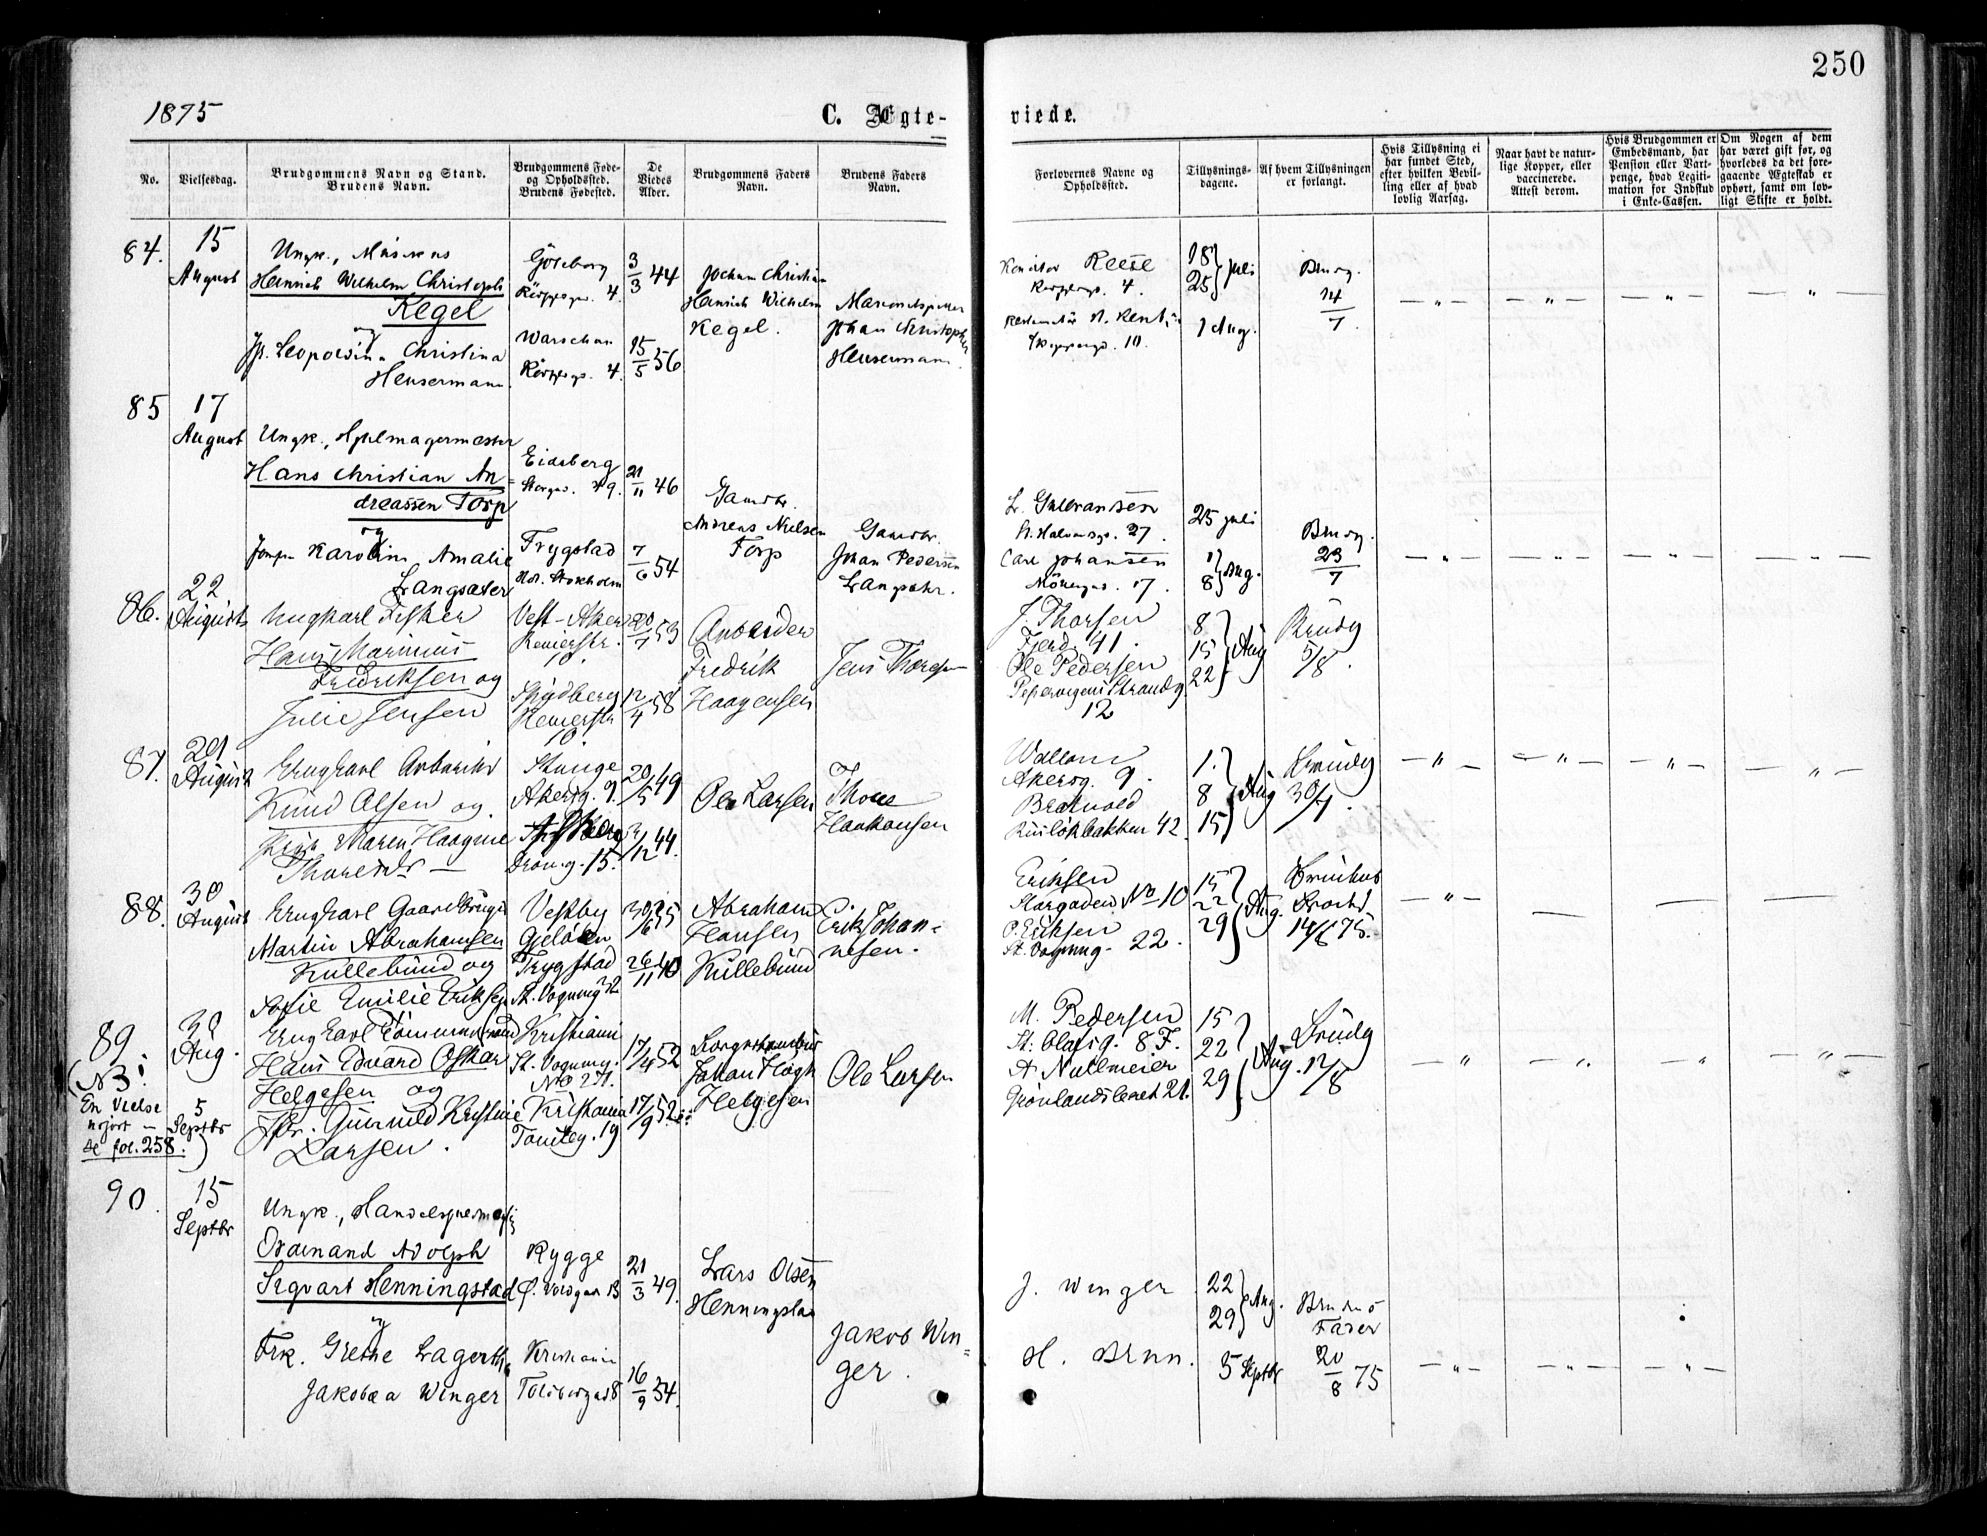 250
1875
C. Ægte-
viede.
No.
Vielsesdag.
Brudgommens Navn og Stand.
Brudens Navn.
Brudgommens Føde-
og Opholdssted.
Brudens Fødested.
De
Viedes
Alder.
Brudgommens Faders
Navn.
Brudens Faders
Navn.
Forlovernes Navne og
Opholdssted.
Tillysnings-
dagene.
Af hvem Tillysningen
er forlangt.
Hvis Tillysning ei
har fundet Sted,
efter hvilken Bevil-
ling eller af hvad
lovlig Aarsag.
Naar havt de natur-
lige Kopper, eller
vaccinerede.
Attest derom.
Hvis Brudgommen er
Embedsmand, har
Pension eller Vart-
penge, hvad Legiti-
mation for Indskud
i Enke-Cassen.
Om Nogen af dem
har været gift før, og
hvorledes da det fore-
gaaende Ægteskab er
ophørt, samt om lov-
ligt Skifte er holdt.
84.
15
August
Ungk.,
Heinrich Wilhelm Christoph
Kegel
og
Leopoldina Christina
Heusermann
Göteborg
4.
Warschau
4.
3/3 44
15/5 56
Jochum Christian
Heinrich Wilhelm
Kegel.
Johan Christopher
Heusermann
Reese
4.
10.
18
25 } Juli
1 Aug.
Brudg.
14/7.
85
17
August
Ungk., Hjulmagermester
Hans Christian An-
dreassen Torp
og
Karoline Amalie
Langsæter
Eidsberg
Storgd. 49.
Trygstad
21/11 46
7/6 54
Gaardbr.
Andreas Nielsen
Torp
Gaardbr.
Johan Pedersen
Langsæter.
L. Gulbransen
St. Halvardsgd. 27.
Carl Johansen
Möllergd. 17.
25 Juli
1
8 } Aug.
Brudg.
23/7
86.
22
August
Ungkarl Fisker
Hans Marinius
Fredriksen og
Julie Jensen
Vest-Aker
10
Spydberg
10
20/7 53
12/4 58
Arbeider
Fredrik
Haagensen
Jens Thoresen
J. Thorsen
41.
Ole Pedersen
Pipervigens Strandg
12
8
15
22 } Aug
Brudg
5/8.
87.
201
August
Ungkarl
Knud Olsen og
Maren Haagine
Akersg. 9.
15.
20/5 49
/12 44.
Ole Larsen
Thore
Haakonsen
Akersg. 9.
Ruseløkbakken 42.
1.
8
15 } Aug
Brudg
30/7.
88.
30
August
Ungkarl Gaardbruger
Martin Abrahamsen
Kullebund og
Sofie Emilie Eriksen
Vestby
Gjeløen
Trygstad
St. Vognmg 22
26/11 40
Abraham
Hansen
Kullebund
Erik Johan-
nesen.
Eriksen
Storgaden No 10
P. Eriksen
St. Vognmg. 22.
15
22
29 } Aug.
14/8 75.
89
(N3:
En Vielse
uajort -
se fol. 258.
30
Aug.
5
Septbr
Ungkarl Tømmermand
Hans Edvard Oskar
Helgesen og
Gunhild Kristine
Larsen.
Kristiania
St. Vognmg.
No 21.
Kristiania
Tomteg. 19
17/4 52
17/9 52
Johan Høgh
Helgesen
Ole Larsen
M. Pedersen
St. Olafsg. 8 F.
A. Nullmeier
Grønlandsleret 21.
15
22
29 } Aug.
Brudg
12/8
90.
15
Septbr
Ungk., Handelsfuldmægtig
Ordinand Adolph
Segvart Henningstad
og
Frk. Grethe Lagertha
Jakobæa Winger
Rygge
Kristiania
Toldbodgad 8
21/3 49.
16/9 54.
Lars Olsen
Henningstad
Jakob Win-
ger.
J. Winger
H. Brun.
22
29 } Aug.
5 Septbr
Brudens
Fader
20/8 75